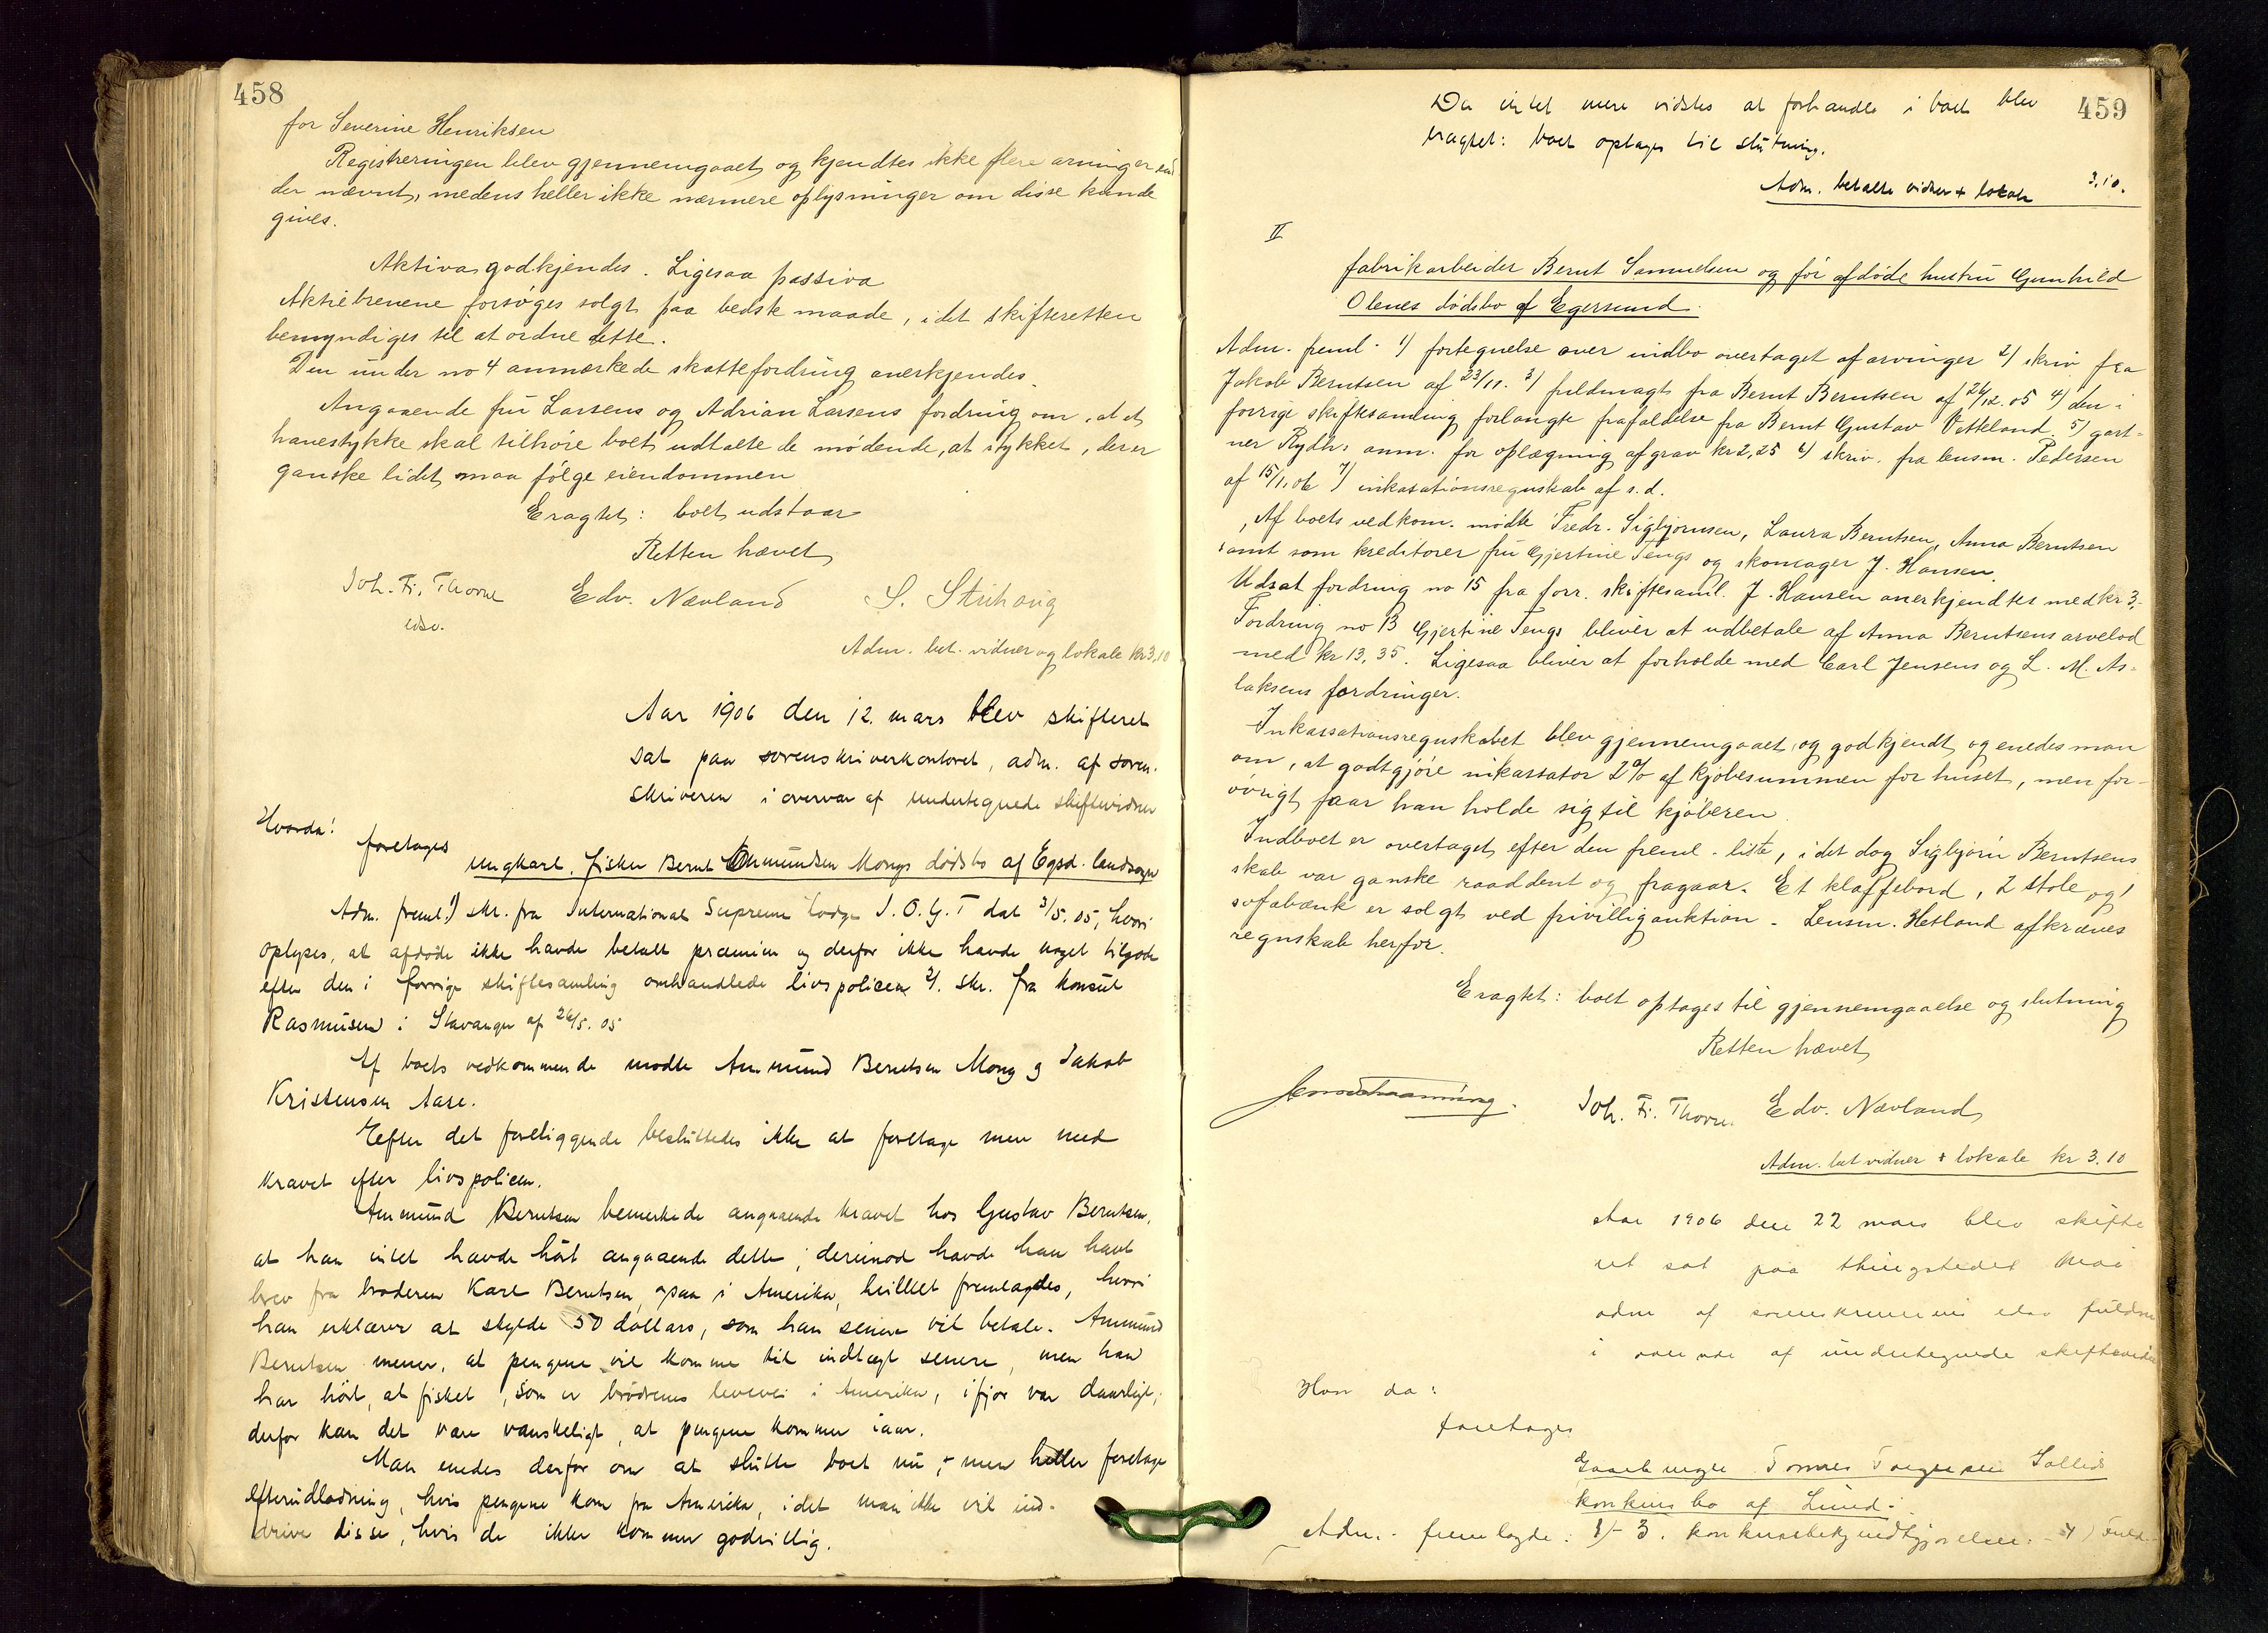 458
for Severine Henriksen
Registreringen blev gjennemgaaet og kjendtes ikke flere arvinger end
der nævnt, medens heller ikke nærmere oplysninger om disse kunde
gives.
Aktiva godkjendes. Ligesaa passiva
Aktiebrevene forsøges solgt paa bedste maade, idet skifteretten
bemyndiges til at ordne dette.
Den under no 4 anmærkede skattefordring anerkjendes.
Angaaende fru Larsens og Adrian Larsens fordring om, at et
havestykke skal tilhøre boet udtalte de mødende, at stykket, der er
ganske lidet maa følge eiendommen
Eragtet: boet udstaar
Retten hævet
Joh. Fr. Thorne Edv. Nævland S.
edsv.
Adm. bet. vidner og lokale kr 3,10
Aar 1906 den 12. mars blev skifteret
sat paa sorenskriverkontoret, adm. af soren-
skriveren i overvær af undertegnede skiftevidner
Hvorda:
foretages
ungkarl, fisker Bernt Ommundsen Mongs dødsbo af Egsd. landsogn
Adm. freml: 1) skr. fra International Supreme Lodge I. O. G. T dat 3/5. 05, hvori
oplyses, at afdøde ikke havde betalt præmien og derfor ikke havde noget tilgode
efter den i forrige skiftesamling omhandlede livspolicen 2). skr. fra konsul
Rasmussen i Stavanger af 26/5. 05
Af boets vedkommende mødte Ammund Berntsen Mong og Jakob
Kristensen Aase.
Efter det foreliggende besluttedes ikke at foretage mere med
kravet efter livspolicen.
Ammund Berntsen bemerkede angaaende kravet hos Gustav Berntsen,
at han intet havde hørt angaaende dette; derimod havde han havt
brev fra broderen Karl Berntsen, ogsaa i Amerika, hvilket fremlagdes, hvori
han erklærer at skylde 50 dollars, som han senere vil betale. Ammund
Berntsen mener, at pengene vil komme til indtægt senere, men han
har hørt, at fisket, som er brødrenes levevei i Amerika, ifjor var daarligt;
derfor kan det være vanskeligt, at pengene kommer iaar.
Man enedes derfor om at slutte boet nu, men heller foretage
efterudlodning, hvis pengene kom fra Amerika, idet man ikke vil ind-
drive disse, hvis de ikke kommer godvillig.
459
Da intet mere vidstes at forhandle i boet blev
eragtet: boet optages til slutning.
Adm. betalte vidner + lokale 3,10.
II
fabrikarbeider Bernt Samuelsen og før afdøde hustru Gunhild
Olenes dødsbo af Egersund.
Adm. freml. 1) fortegnelse over indbo overtaget af arvinger 2) skriv fra
Jakob Berntsen af 23/11. 3) fuldmagt fra Bernt Berntsen af 26/12. 05 4) den i
forrige skiftesamling forlangte frafaldelse fra Bernt Gustav Vetteland 5) gart-
ner Rydhs anm. for oplægning af grav kr 2,25 6) skriv. fra lensm. Pedersen
af 15/1. 06 7) inkasationsregnskab af s. d.
Af boets vedkom. mødte Fredr. Sigbjørnsen, Laura Berntsen, Anna Berntsen
samt som kreditorer fru Gjertine Tengs og skomager J. Hansen.
Udsat fordring no 15 fra forr. skiftesaml. J. Hansen anerkjendtes med kr 3,-
Fordring no 13 Gjertine Tengs bliver at udbetale af Anna Berntsens arvelod
med kr 13,35. Ligesaa bliver at forholde med Carl Jensens og L. M. As-
laksens fordringer.
Inkassationsregnskabet blev gjennemgaaet og godkjendt og enedes man
om, at godtgjøre inkassator 2% af kjøbesummen for huset, men for-
øvrigt faar han holde sig til kjøberen.
Indboet er overtaget efter den freml. liste, idet dog Sigbjørn Berntsens
skab var ganske raaddent og fragaar. Et klaffebord, 2 stole og 1
sofabænk er solgt ved frivillig auktion. Lensm. Hetland afkræves
regnskab herfor.
Eragtet: boet optages til gjennemgaaelse og slutning
Retten hævet
Joh. Fr. Thorne. Edv. Nævland
Adm. bet vidner + lokale kr 3.10
Aar 1906 den 22 mars blev skifte
ret sat paa thingstedet Moi
adm af sorenskriverens edsv fuldm
i overvær af undertegnede skiftevidner
Hvor da:
foretages
Tollefs
konkursbo af Lund.
Adm. fremlagde: 1)-3. konkursbekjendtgjørelser. - 4) Fuld-